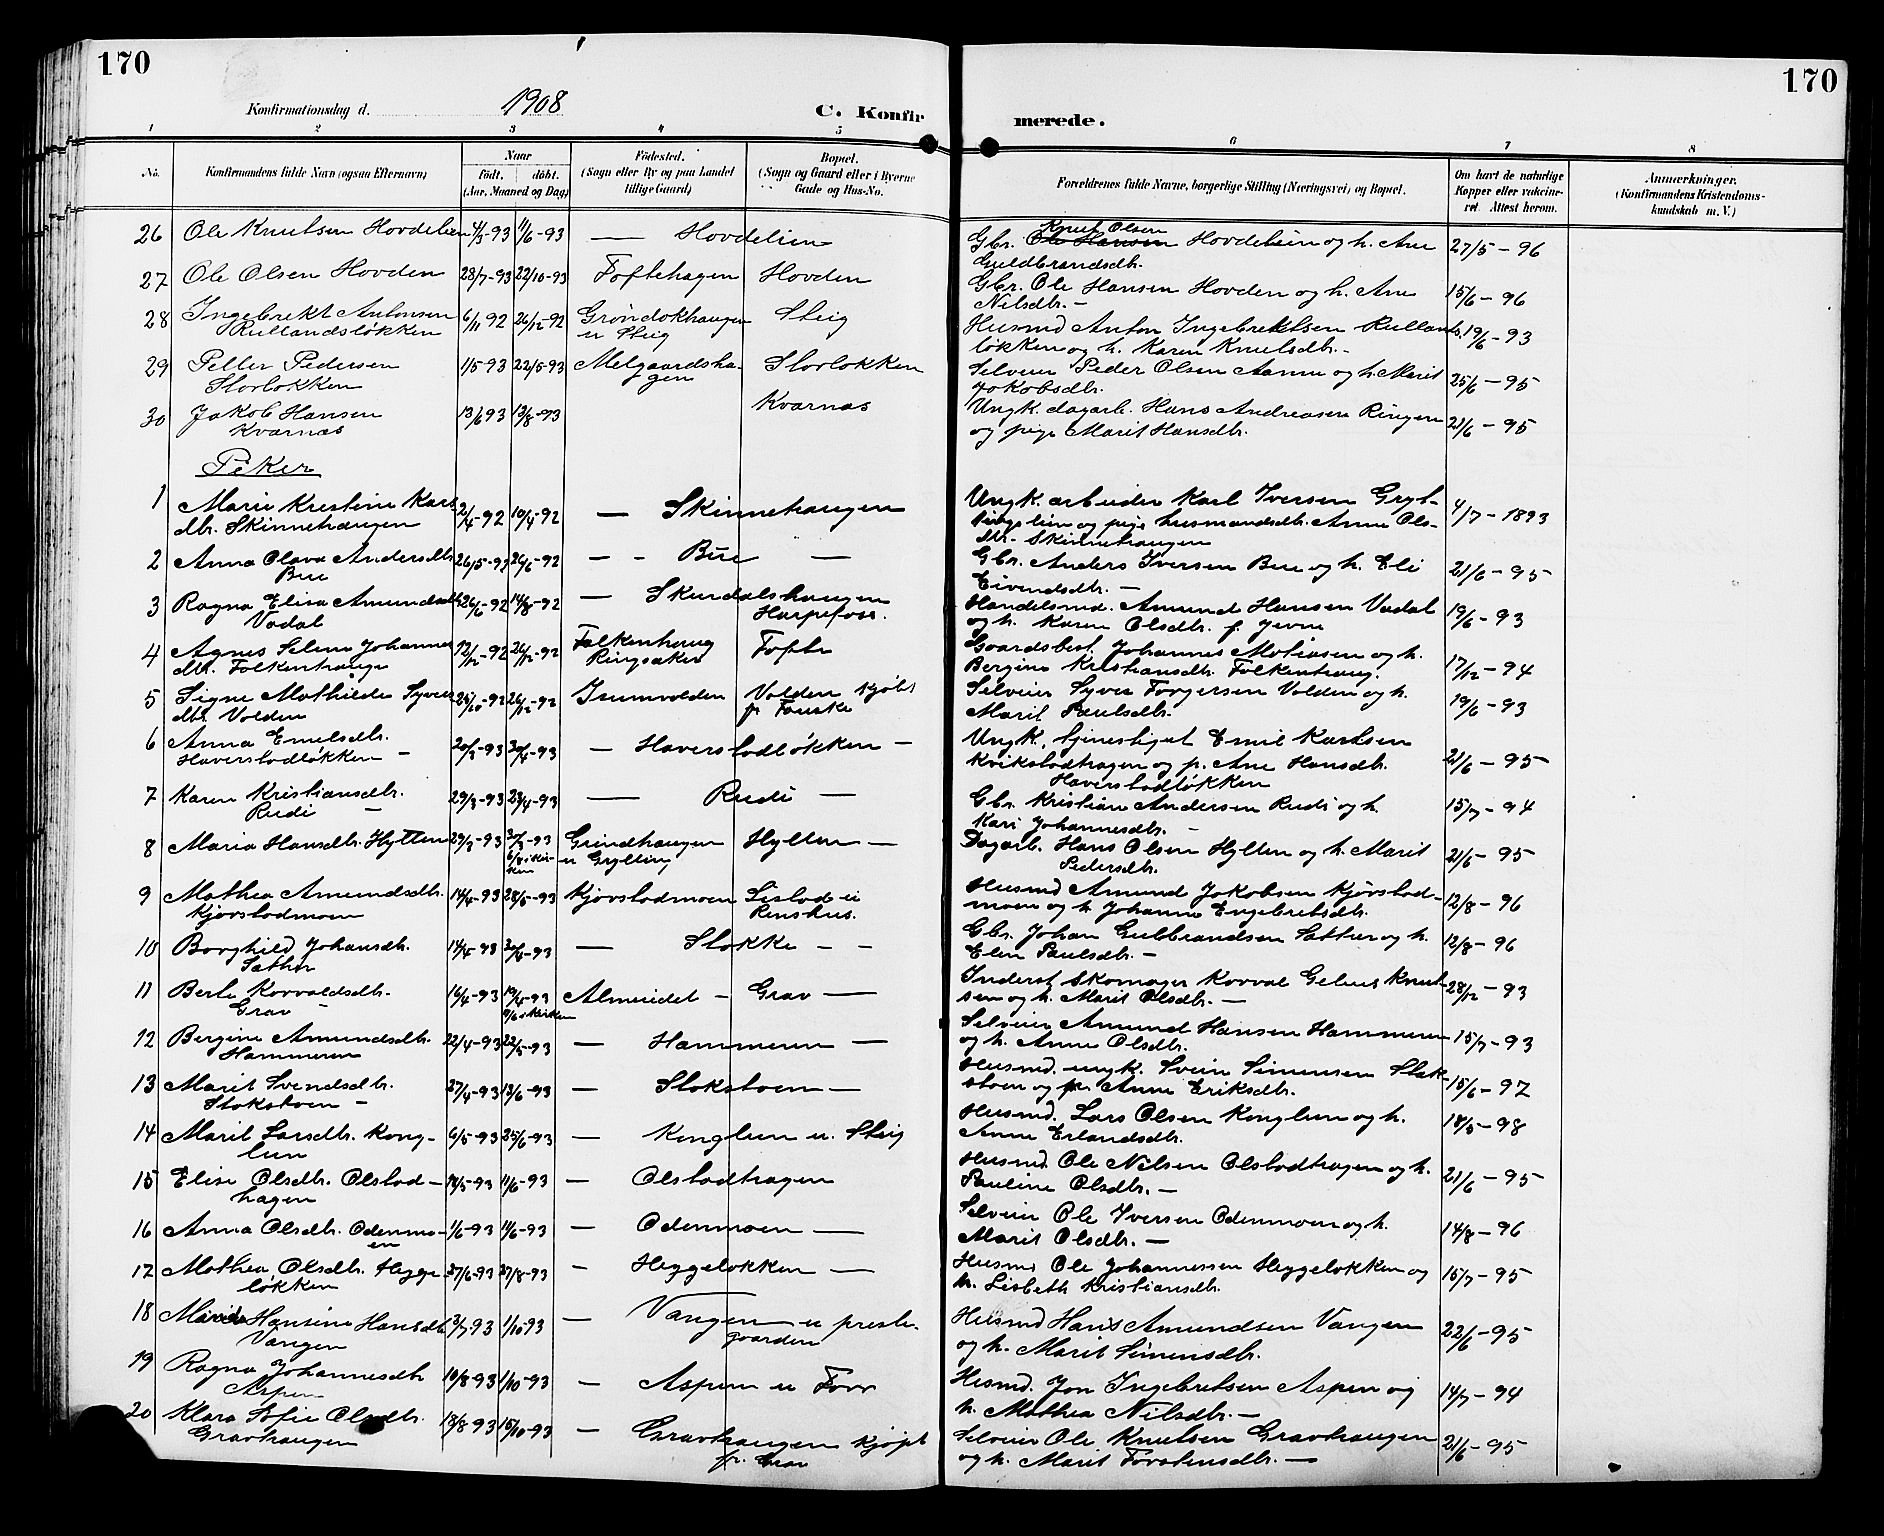 170
170
Konfirmationsdag d. 1908
C. Konfir
merede.
1 2 3 4 5 6 7 8
No.
Konfirmandens fulde Navn (ogsaa Efternavn)
Naar
födt. döbt.
(Aar, Maaned og Dag)
Födested.
(Sogn eller By og paa Landet
tillige Gaard)
Bopæl.
(Sogn og Gaard eller i Byerne
Gade og Hus-No.
Forældrenes fulde Navne, borgerlige Stilling (Næringsvei) og Bopæl.
Om havt de naturlige
Kopper eller vakcine-
ret. Attest herom.
Anmærkninger.
(Konfirmandens Kristendoms-
kundskab m. V.)
26 Ole Knutsen Hovdelien 4/3-93 11/6-93 — Hovdelien
Knut Olsen
Gbr. Ole Hansen Hovdelien og h. Ane 27/5-96
Guldbrandsdtr.
27 Ole Olsen Hovden 28/7-93 22/10-93 Toftehagen Hovden
Gbr. Ole Hansen Hovden og h. Ane 15/6-96
Nilsdtr. —
28 Ingebrekt Antonsen 6/11 92 26/12-92 Grøndokhaugen Steig
Rullandsløkken u Steig
Husmd Anton Ingebrektsen Rullands- 19/6-93
løkken og h. Karen Knutsdtr. -
29 Petter Pedersen 1/5-93 22/5-93 Melgaardsha- Storløkken
Storløkken gen
Selveier Peder Olsen Aanne og h. Marit 25/6-95
Jakobsdtr.
30 Jakob Hansen 13/6 93 13/8-93 Kvarnæs
Kvarnæs
Ungk. dagarb. Hans Andreasen Ringen 21/6-95
og pige Marit Hansdtr.
Piker
1 Marie Kristine Karls- 2/4-92 10/4-92 — Skinnehaugen
dtr. Skinnehaugen
Ungk. arbeider Karl Iversen Gryt- 4/7-1893
lien og pige husmandsdtr. Anne Ols-
dtr. Skinnehaugen
2 Anna Olava Andersdtr. 26/5-92 26/6-92 — - Bue —
Bue
Gbr. Anders Iversen Bue og h. Eli 21/6-95
Eivendsdtr. —
3 Ragna Elisa Amundsdtr. 26/6-92 14/8-92 — Skurdalshaugen
Vadal Harpefoss.
Handelsmd. Amund Hansen Vadal 19/6-93
og h. Karen Olsdtr. f. Jevne
4 Agnes Selene Johannes 12/12-92 26/12-92 Falkenhaug Tofte
dtr. Falkenhaug Ringsaker
Gaardsbest. Johannes Matiasen og h. 17/12-94
Bergine Kristiansdtr. Falkenhaug.
5 Signe Mathilde Syvers 25/10-92 26/12-92 Isumvolden Volden kjøbt
dtr. Volden fr. Fauske
Selveier Syver Torgersen Volden og h. 19/6-93
Marit Paulsdtr.
6 Anna Emilsdtr. 20/3-93 30/4-93 — Haverstadløkken —
Haverstadløkken —
Ungk. Emil Karlsen 21/6-95
Kvikstadhagen og p. Ane Hansdtr.
Haverstadløkken
7 Karen Kristiansdtr. 29/3-93 23/4-93 — Rudi —
Rudi —
Gbr. Kristian Andersen Rudi og h. 15/7-94
Kari Johannesdtr. —
8 Maria Hansdtr. Hytten 29/3-93 30/3-93 Grindhaugen Hytten —
u Grytting
Dagarb. Hans Olsen Hytten og h. Marit 21/6-95
Pedersdtr.
9 Mathea Amundsdtr. 14/4-93 28/5-93 Kjørstadmoen Listad u
Kjørstadmoen Renshus.
Husmd Amund Jakobsen Kjørstad- 12/8-96
moen og h Johanne Engebretsdtr.
10 Borghild Johansdtr. 14/4-93 30/4-93 — Stokke — -
Sæther
Gbr. Johan Gulbrandsen Sætter og h. 12/8-96
Elen Paulsdtr. —
11 Berte Korvaldsdtr. 16/4-93 19/4-93 Almeidet — Grav —
Grav — i Kirken
Inderst Skomager Korval Gelius Knut- 28/12-93
sen og h. Marit Olsdtr. —
12 Bergine Amundsdtr. 22/4-93 22/5-93 — Hammeren —
Hammeren
Selveier Amund Hansen Hammeren 15/7-93
og h. Anne Olsdtr.
13 Marit Svendsdtr. 27/4-93 13/6-93 — Stokstoen —
Stokstoen —
Husmd. ungk. Svein Simensen Stok- 15/6-97
stoen og p. Anne Eriksdtr.
14 Marit Larsdtr. Kong- 6/5-93 25/6-93 — Konglien u. Steig
lien
Husmd. Lars Olsen Konglien og h. 18/5-98
Anne Erlandsdtr.
15 Elise Olsdtr. Olstad- 14/5-93 11/6-93 — Olstadhagen
hagen
Husmd. Ole Nilsen Olstadhagen og h. 21/6-95
Pauline Olsdtr. —
16 Anna Olsdtr. Odenmo- 1/6-93 11/6-93 — Odenmoen —
en
Selveier Ole Iversen Odenmoen og h. 14/8-96
Marit Olsdtr. —
17 Mathea Olsdtr. Hegge- 27/6-93 27/8-93 — Heggeløkken —
løkken
Husmd Ole Johannessen Heggeløkken og 15/7-95
h. Lisbeth Kristiansdtr.
18 Hansine Hansdtr 3/7 93 1/10-93 — Vangen u preste-
Vangen gaarden
Husmd Hans Amundsen Vangen 22/6-95
og h. Marit Simensdtr.
19 Ragna Johannesdtr 10/8-93 1/10-93 — Aspen u Forr
Aspen
Husmd. Jon Ingebretsen Aspen og 14/7-94
h. Mathea Nilsdtr. —
20 Klara Sofie Olsdtr. 18/8-93 15/10-93 — Gravhaugen kjøpt
Gravhaugen fr. Grav
Selveier Ole Knutsen Gravhaugen 21/6-95
og h. Marit Torstensdtr. —